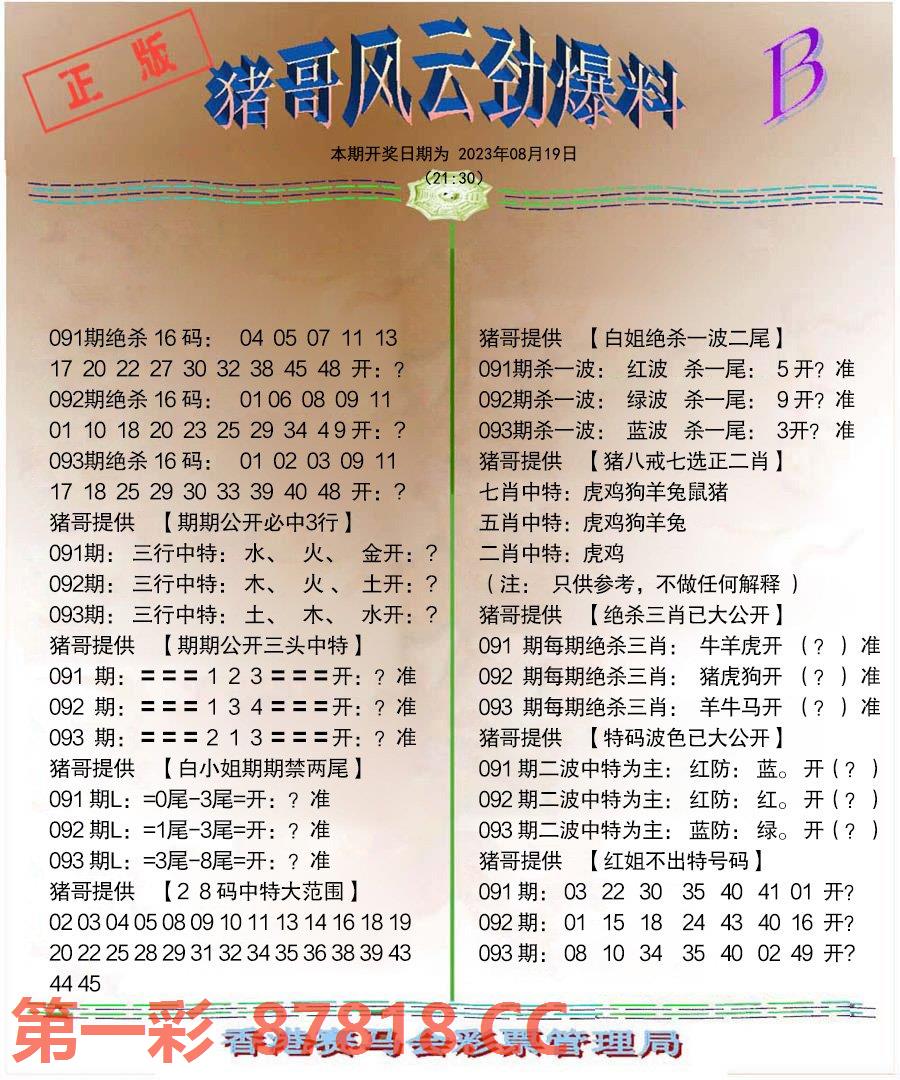 正版
猪哥风云劲爆料
B
本期开奖日期为 2023年08月19日
(21:30)
091期绝杀 16 码： 04 05 07 11 13
17 20 22 27 30 32 38 45 48 开：？
092期绝杀 16 码： 01 06 08 09 11
01 10 18 20 23 25 29 34 4 9 开：？
093期绝杀 16 码： 01 02 03 09 11
17 18 25 29 30 33 39 40 48 开：？
猪哥提供 【期期公开必中3行】
091期： 三行中特： 水、 火、 金开：？
092期： 三行中特： 木、 火 、土开：？
093期： 三行中特： 土、 木、 水开：？
猪哥提供 【期期公开三头中特】
091 期：〓〓〓 1 2 3 〓〓〓开：？准
092 期：〓〓〓 1 3 4 〓〓〓开：？准
093 期：〓〓〓 2 1 3 〓〓〓开：？准
猪哥提供 【白小姐期期禁两尾】
091 期L：=0尾-3尾=开：？准
092 期L：=1尾-3尾=开：？准
093 期L：=3尾-8尾=开：？准
猪哥提供 【２８码中特大范围】
02 03 04 05 08 09 10 11 13 14 16 18 19
20 22 25 28 29 31 32 34 35 36 38 39 43
44 45
猪哥提供 【白姐绝杀一波二尾】
091期杀一波： 红波 杀一尾： 5 开？准
092期杀一波： 绿波 杀一尾： 9 开？准
093期杀一波： 蓝波 杀一尾： 3开？ 准
猪哥提供 【猪八戒七选正二肖】
七肖中特：虎鸡狗羊兔鼠猪
五肖中特：虎鸡狗羊兔
二肖中特：虎鸡
（注： 只供参考，不做任何解释 ）
猪哥提供 【绝杀三肖已大公开】
091 期每期绝杀三肖： 牛羊虎开 （？ ）准
092 期每期绝杀三肖： 猪虎狗开 （？ ）准
093 期每期绝杀三肖： 羊牛马开 （？ ）准
猪哥提供 【特码波色已大公开】
091 期二波中特为主： 红防： 蓝。 开（？ ）
092 期二波中特为主： 红防： 红。 开（？ ）
093 期二波中特为主： 蓝防： 绿。 开（？ ）
猪哥提供 【红姐不出特号码】
091 期： 03 22 30 35 40 41 01 开？
092 期： 01 15 18 24 43 40 16 开？
093 期： 08 10 34 35 40 02 49 开？
第一彩 87818.CC
香港赛马会彩票管理局